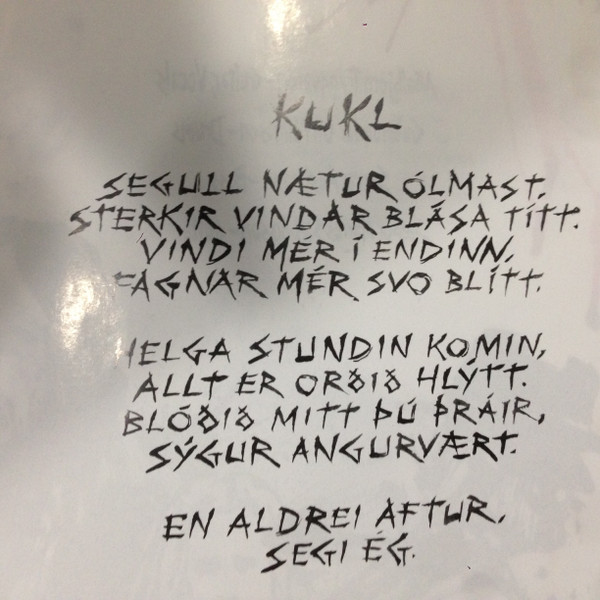 KUKL
SEGULL NÆTUR ÓLMAST,
STERKIR VINDAR BLÁSA TÍTT.
VINDI MÉR Í ENDINN,
FAGNAR MÉR SVO BLÍTT.
HELGA STUNDIN KOMIN,
ALLT ER ORÐIÐ HLÝTT.
BLÓÐIÐ MITT ÞÚ ÞRÁIR,
SÝGUR ANGURVÆRT.
EN ALDREI AFTUR,
SEGI ÉG.